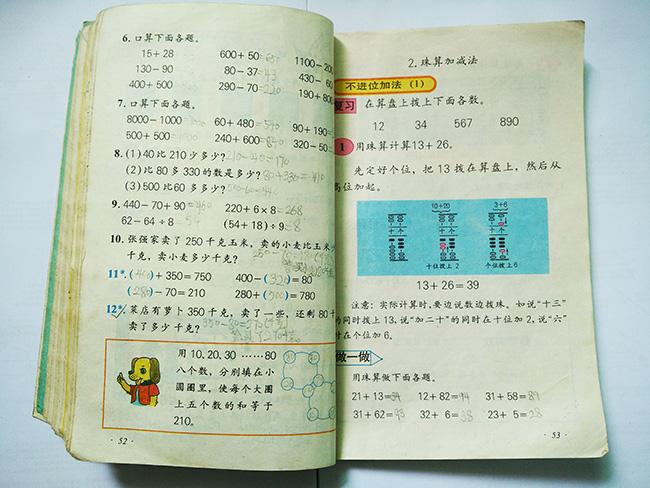 6. 口算下面各题。
15+28 600+50=650 1100-200
130-90 80-37=43 430-60
400+500 290-70=220 190+800
7. 口算下面各题。
8000-1000 60+480=540 90+190=
500+500 240+600=840 320-50=
8. (1)40比210少多少?210-40=170
(2)比80多330的数是多少?80+330=410
(3)500比60多多少?
9. 440-70+90=460 220+6×8=268
62-64÷8=54 (54+18)÷9=8
10. 张强家卖了250千克玉米,卖的小麦比玉米少
千克,卖小麦多少千克?
11*.(400)+350=750 400-(320)=80
(280)-70=210 280+(500)=780
12*. 菜店有萝卜350千克,卖了一些,还剩80千
卖了多少千克?
用10、20、30……80
八个数,分别填在小
圆圈里,使每个大圈
上五个数的和等于
210。
·52·
2.珠算加减法
不进位加法(1)
复习 在算盘上拨上下面各数。
12 34 567 890
1 用珠算计算13+26。
先定好个位,把13拨在算盘上,然后从
高位加起。
10+20 3+6
十个 十个 十个
十位拨上2 个位拨上6
13+26=39
注意:实际计算时,要边说数边拨珠。如说“十三”
的同时拨上13,说“加二十”的同时在十位加2,说“六”
时在个位加6。
做一做
用珠算做下面各题。
21+13=34 12+82=94 31+58=89
31+62=93 32+6=38 23+5=28
·53·